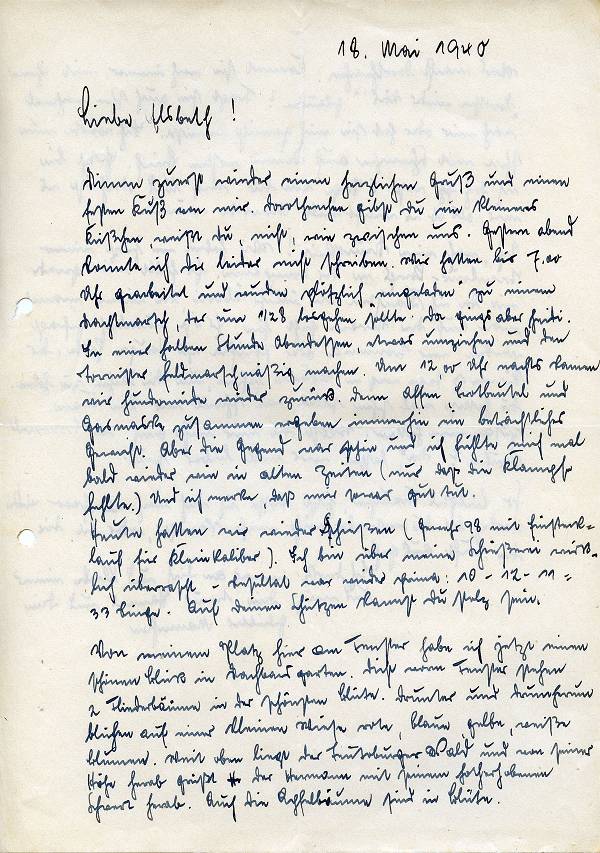 18. Mai 1940
Liebe Elsbeth!
Dirnen zuerst wieder einen herzlichen Gruß und einen
festen Kuß von mir. Dorothenchen gibst du ein kleines
Küßchen, weißt du, nicht, wie zwischen uns. Gestern abend
konnte ich dir leider nicht schreiben. Wir hatten bis 7.00
Uhr gearbeitet und wurden plötzlich "eingeladen" zu einem
Nachtmarsch, der um 1/28 losgehen sollte. Da gings aber
In einer halben Stunde Abendessen, etwas umziehen und den
Tornister feldmarschmäßig machen. Um 12 00 Uhr nachts kamen
wir hundemüde wieder zurück. Denn Affen, Brotbeutel und
Gasmaske zusammen ergeben immerhin ein beträchtliches
Gewicht. Aber die Gegend war schön und ich fühlte mich mal
bald wieder wie in alten Zeiten (nur daß die Klampfe
fehlte.) Und ich merke, daß mir sowas gut tut.
Heute hatten wir wieder Schießen (Gewehr 98 mit Einsteck-
lauf für Kleinkaliber). Ich bin über meine Schießerei wirk-
lich überrascht. Resultat war wieder prima: 10 - 12 - 11 =
33 Ringe. Auf deinen Schützen kannst du stolz sein.
Von meinem Platz hier am Fenster habe ich jetzt einen
schönen Blick in Nachbars garten. Dicht vorm Fenster stehen
2 Fliederbäume in der schönsten Blüte. Drunter und drumherum
blühen auf einer kleinen Wiese rote, blaue, gelbe, weiße
Blumen. Weit oben liegt der Teutoburger Wald und von seiner
Höhe herab grüßt der Hermann mit seinem hocherhobenen
Schwert herab. Auch die Apfelbäume sind in Blüte.